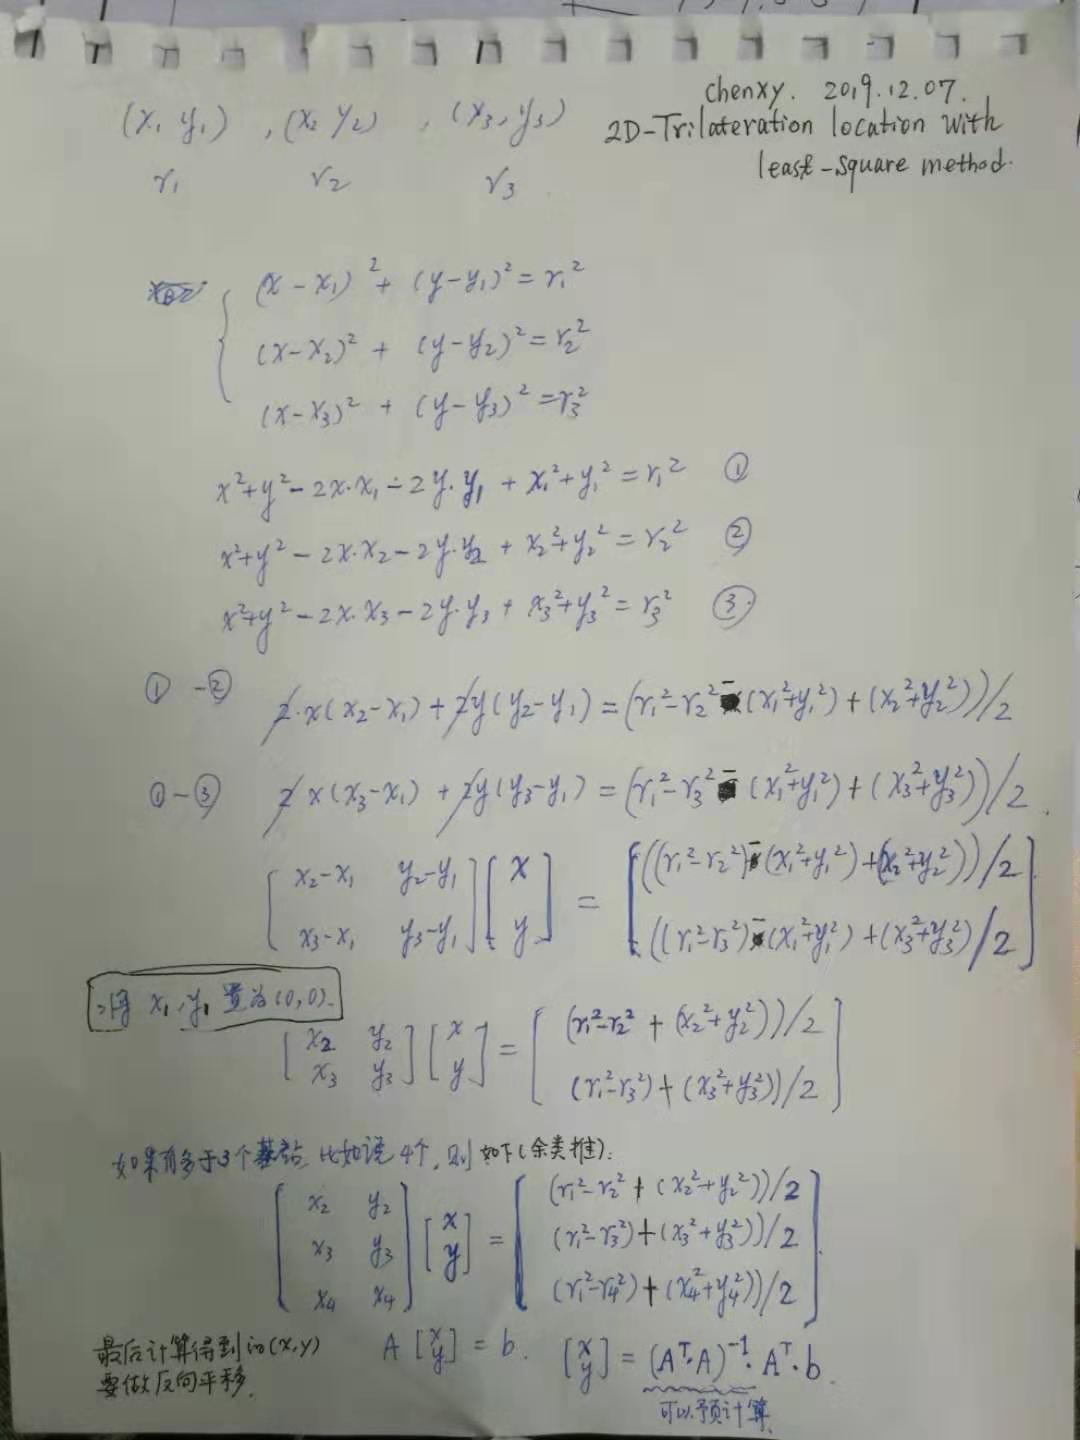 chenxy. 2019.12.07.
2D-Trilateration location with
least-square method.
(x₁ y₁) , (x₂ y₂) , (x₃, y₃)
r₁ r₂ r₃
(x-x₁)² + (y-y₁)² = r₁²
(x-x₂)² + (y-y₂)² = r₂²
(x-x₃)² + (y-y₃)² = r₃²
x²+y²-2x·x₁-2y·y₁ + x₁²+y₁² = r₁² ①
x²+y²-2x·x₂-2y·y₂ + x₂²+y₂² = r₂² ②
x²+y²-2x·x₃-2y·y₃ + x₃²+y₃² = r₃² ③
①-② 2·x(x₂-x₁)+2y(y₂-y₁) = (r₁²-r₂²-(x₁²+y₁²)+(x₂²+y₂²))/2
①-③ 2x(x₃-x₁)+2y(y₃-y₁) = (r₁²-r₃²-(x₁²+y₁²)+(x₃²+y₃²))/2
[x₂-x₁ y₂-y₁] [x] = [((r₁²-r₂²)-(x₁²+y₁²)+(x₂²+y₂²))/2]
[x₃-x₁ y₃-y₁] [y] [((r₁²-r₃²)-(x₁²+y₁²)+(x₃²+y₃²)/2]
将 x₁, y₁ 置为(0,0).
[x₂ y₂] [x] = [(r₁²-r₂² + (x₂²+y₂²))/2]
[x₃ y₃] [y] [(r₁²-r₃²)+(x₃²+y₃²))/2]
如果有多于3个基站,比如说4个,则如下(余类推):
[x₂ y₂] [(r₁²-r₂²+(x₂²+y₂²))/2]
[x₃ y₃] [x y] = [(r₁²-r₃²)+(x₃²+y₃²))/2]
[x₄ x₄] [(r₁²-r₄²)+(x₄²+y₄²))/2]
最后计算得到的(x,y)
要做反向平移.
A [x y] = b. [x y] = (Aᵀ·A)⁻¹·Aᵀ·b
可以预计算